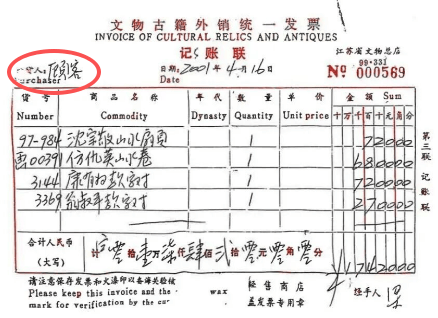 文物古籍外销统一发票
INVOICE OF CULTURAL RELICS AND ANTIQUES
记账联
江苏省文物总店
99·331
购货人: 顾客
Purchaser
日期: 2001年4月16日
Date
№ 000569
货号 商品名称 年代 数量 单价 金额 Sum
Number Commodity Dynasty Quantity Unit price 十万千百十元角分
97-984 沈宗敬山水扇页 1 72000
曹00391 仿仇英山水卷 1 680000
3144 康有为款字对 1 720000
3369 翁叔平款字对 1 270000
第三联 记账联
合计人民币
(大写)
计 零拾壹万柒仟肆佰贰拾零元零角零分
¥1742000
请注意保存发票和火漆印以备海关验核
Please keep this invoice and the
mark for verification by the
wax
经售商店
盖发票专用章
经手人